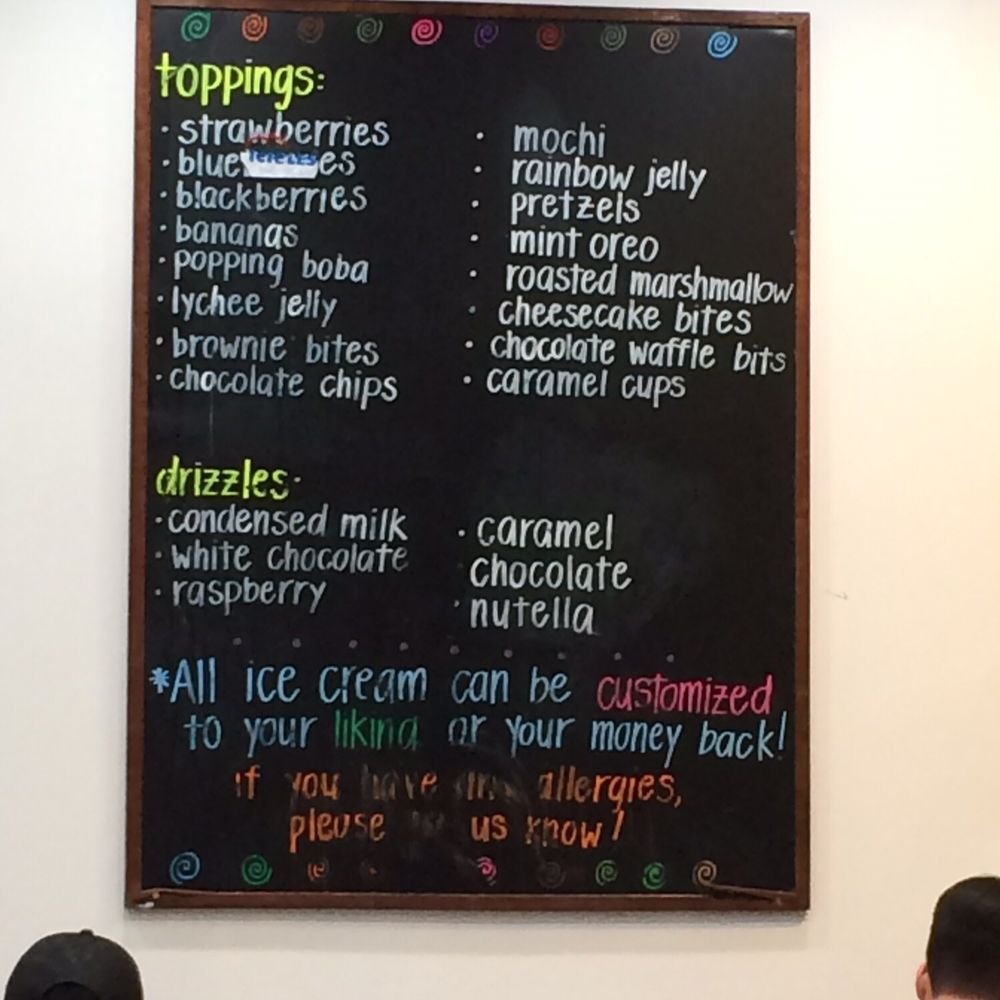 toppings:
· strawberries
· blackberries
· bananas
· popping boba
· lychee jelly
· brownie bites
· chocolate chips
· mochi
· rainbow jelly
· pretzels
· mint oreo
· roasted marshmallow
· cheesecake bites
· chocolate waffle bits
· caramel cups
drizzles:
· condensed milk
· white chocolate
· raspberry
· caramel
chocolate
· nutella
*All ice cream can be customized
to your liking or your money back!
if you have any allergies,
please us know!